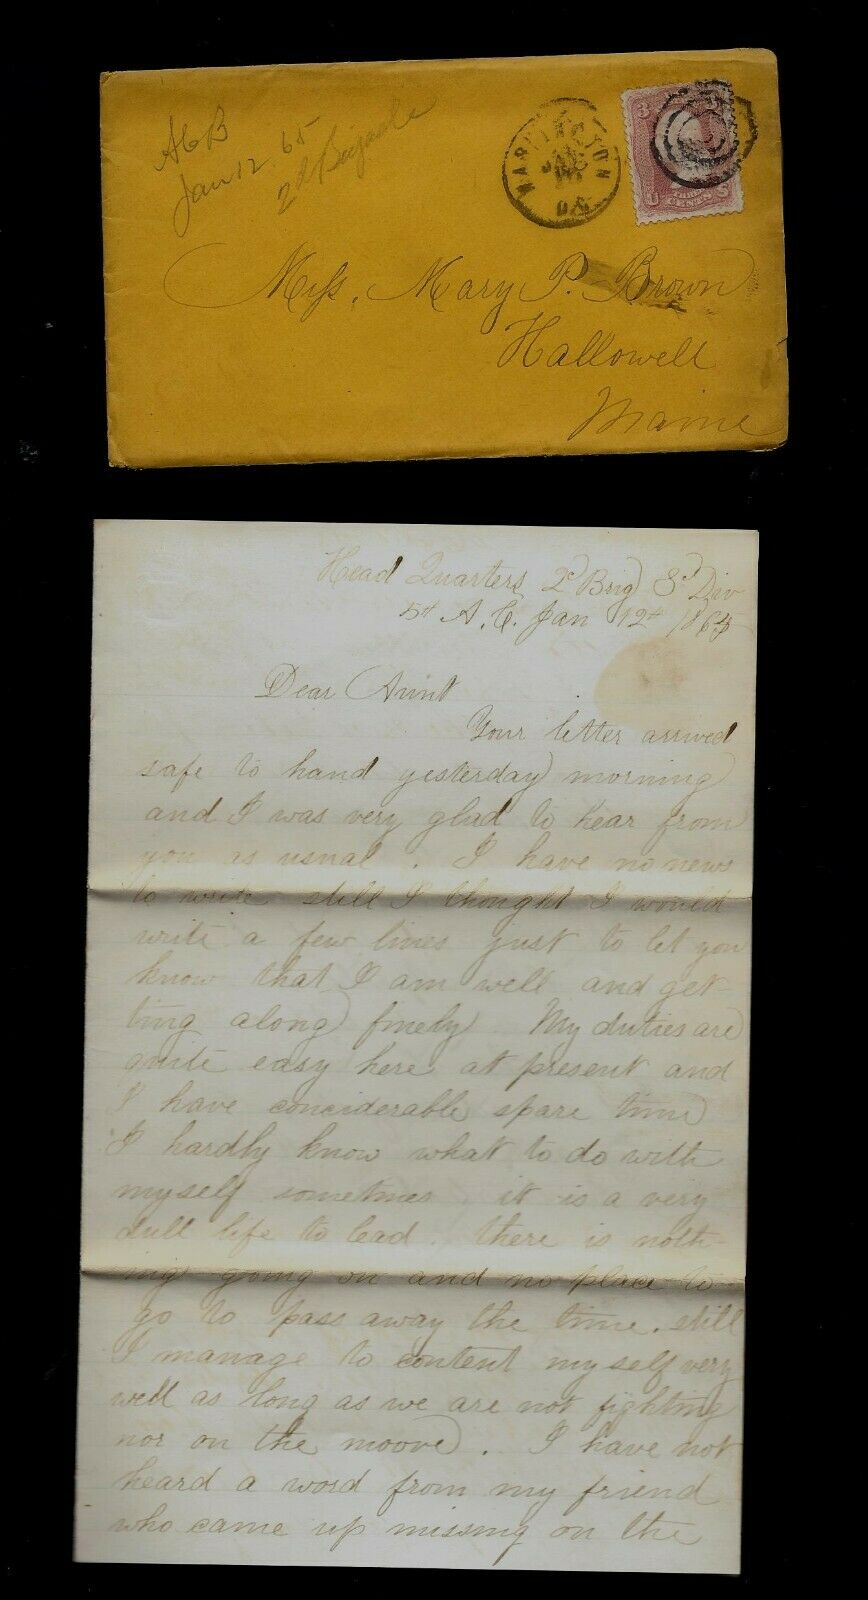 A C B
Jan 12 65
2d Brigade
WASHINGTON
JAN
3
THREE
CENTS
U S
Miss. Mary P. Brown
Hallowell
Maine
Head Quarters 2d Brig 3d Div
5th A. C. Jan 12th 1865
Dear Aunt
Your letter arrived
safe to hand yesterday morning
and I was very glad to hear from
you as usual. I have no news
to write still I thought I would
write a few lines just to let you
know that I am well and get-
ting along finely. My duties are
quite easy here at present and
I have conciderable spare time
I hardly know what to do with
myself sometimes, it is a very
dull life to lead. there is noth-
ing going on and no place to
go to pass away the time. still
I manage to content myself very
well as long as we are not fighting
nor on the moove. I have not
heard a word from my friend
who came up missing on the